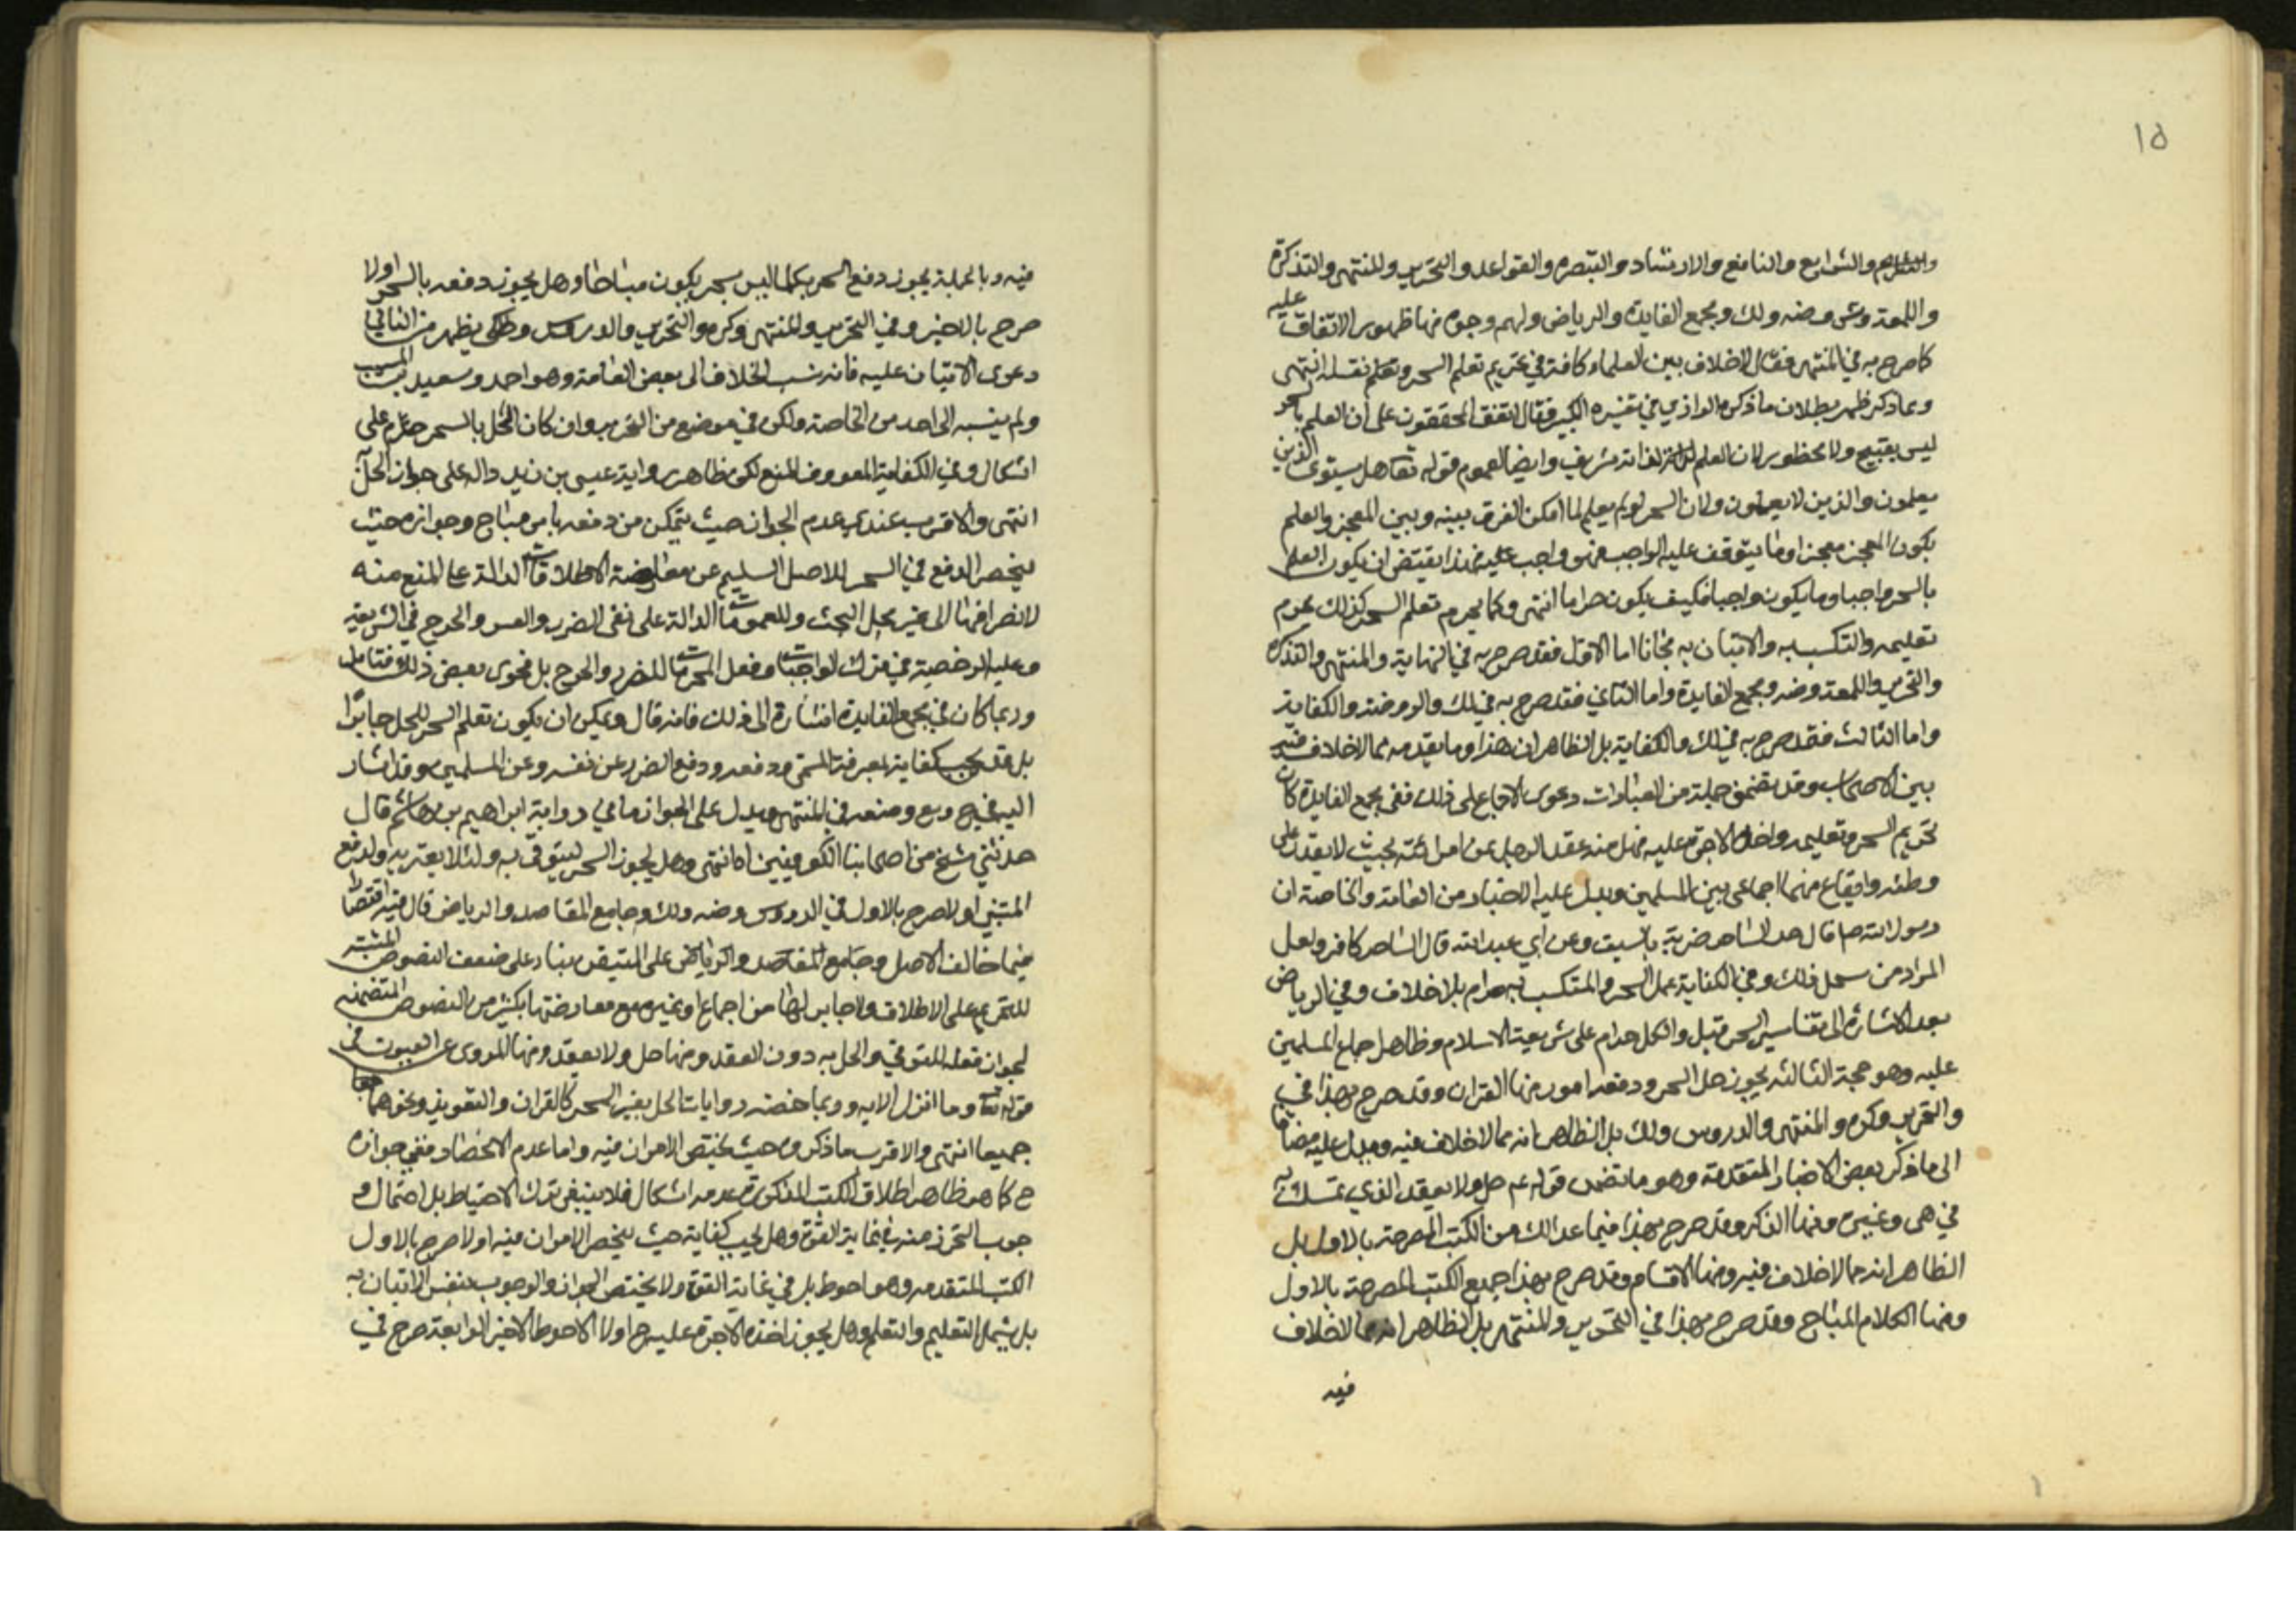 ١٥
والمراسم والشرايع والنافع والارشاد والتبصره والقواعد والتحرير والمنتهى والتذكرة
واللمعة وضه ولك ومجمع الفايدة والرياض ولهم وجوه منها ظهور الاتفاق عليه
كما صرح به في المنتهى فقال لا خلاف بين العلماء كافة في تحريم تعلم السحر وتعلم نقله انتهى
وبما ذكر ظهر بطلان ما ذكره الرازي في تفسيره الكبير فقال اتفق المحققون على ان العلم بالسحر
ليس بقبيح ولا محظور لان العلم لذاته شريف وايضا لعموم قوله تعالى هل يستوى الذين
يعلمون والذين لا يعلمون ولان السحر لو لم يعلم لما امكن الفرق بينه وبين المعجز والعلم
بكون المعجز معجزا وما يتوقف عليه الواجب فهو واجب فهذا يقتضى ان يكون العلم
بالسحر واجبا وما يكون واجبا فكيف يكون حراما انتهى وكما يحرم تعلم السحر كذلك يحرم
تعليمه والتكسب به والاتيان به مجانا اما الاول فقد صرح به في النهاية والمنتهى والتذكرة
والتحرير واللمعة وضه ومجمع الفايدة واما الثاني فقد صرح به في لك والروضة والكفاية
واما الثالث فقد صرح به في لك والكفاية بل الظاهر ان هذا وما تقدمه مما لا خلاف فيه
بين الاصحاب وقد تضمن جملة من العبارات دعوى الاجماع على ذلك ففى مجمع الفايدة كان
تحريم السحر وتعليمه واخذ الاجرة عليه مثل عقد الرجل عن امرائته بحيث لا يقدر على
وطئه وايقاع منهما اجماعى بين المسلمين ويدل عليه الاخبار من العامة والخاصة ان
رسول الله ص قال حد الساحر ضربة بالسيف وعن ابي عبد الله قال الساحر كافر ولعل
المراد من ذلك وفي الكفاية عمل السحر والمتكسب به حرام بلا خلاف وفي الرياض
بعد الاشارة الى تفاسير السحر قيل والكل حرام على شريعة الاسلام وظاهر اجماع المسلمين
عليه وهو حجة الثالثة يجوز حل السحر ودفعه امور منها القران وقد صرح بهذا في
والتحرير وكره والمنتهى والدروس ولك بل الظاهر انه مما لا خلاف فيه ويدل عليه مضافا
الى ما ذكر بعض الاخبار المتقدمة وهو ما تضمن قوله عم حل ولا يعقد الذي تمسك به
في هى وغيره ومنها الذكر وقد صرح بهذا فيما عدا لك من الكتب المصرحة بالاول بل
الظاهر انه مما لا خلاف فيه ومنها الاقسام وقد صرح بهذا جميع الكتب المصرحة بالاول
ومنها الكلام المباح وقد صرح بهذا في التحرير والمنتهى بل الظاهر انه مما لا خلاف
فيه
فيه وبالجملة يجوز دفع السحر بكلما ليس بسحر يكون مباحا وهل يجوز دفعه بالسحر او لا
صرح بالاخير وفي التحرير والمنتهى وكره والتحرير والدروس يظهر من الثاني
دعوى الاتفاق عليه فانه نسب الخلاف الى بعض العامة وهو احمد وسعيد بن المسيب
ولم ينسبه الى احد من الخاصة ولكن في موضع من التحرير وان كان الحل بالسحر حرم على
اشكال وفي الكفاية المعروف المنع لكن ظاهر رواية عيسى بن دالة على جواز الحل
انتهى والاقرب عندي عدم الجواز حيث يتمكن من دفعه بامر مباح وجوازه حيث
ينحصر الدفع في السحر للاصل السليم عن معارضة الاطلاقات الدالة على المنع منه
لانصرافها الى غير محل البحث وللعمومات الدالة على نفى الضرر والعسر والحرج في الشريعة
وعليه الرخصة في ترك الواجبات وفعل المحرمات للضرر والحرج بل فحوى بعض ذلك فتامل
وربما كان في مجمع الفايدة اشارة الى ذلك فانه قال ويمكن ان يكون تعلم السحر للحل جايزا
بل قد يجب كفاية لمعرفة المتنبى ودفعه ودفع الضرر عن نفسه وعن المسلمين وقد اشار
اليه في وضعه في المنتهى ويدل على الجواز ما في رواية ابراهيم بن هاشم قال
حدثني شيخ من اصحابنا الكوفيين انتهى وهل يجوز السحر ليتوقى به ولئلا يعتريه ولدفع
المتنبي او لا صرح بالاول في الدروس وضه ولك وجامع المقاصد والرياض قال فيه اقتصارا
فيما خالف الاصل وجامع المقاصد والرياض على المتيقن بناء على ضعف النصوص المثبتة
للتحريم على الاطلاق ولا جابر لها من اجماع او غيره مع معارضتها بكثير من النصوص المتضمنه
لجواز فعله للتوقي والحل به دون العقد ومنها حل ولا يعقد ومنها المروى عن العيون فى
قوله تعه وما انزل الايه وربما خصه روايات الحل بغير السحر كالقران والتعويذ ونحوهما جمعا
جميعا انتهى والاقرب ما ذكره حيث يختص الامران فيه واما عدم الانحصار ففي جوازه
ح كما هو ظاهر اطلاق الكتب المذكورة وعدمه اشكال فلا ينبغى ترك الاحتياط بل احتمال و
جوب التحرز منه في غاية القوة وهل يجب كفاية حيث ينحصر الامران فيه او لا صرح بالاول
الكتب المتقدمه وهو احوط بل في غاية القوة ولا يختص الجواز والوجوب بنفس الاتيان به
بل يشمل التعليم والتعلم وهل يجوز اخذ الاجرة عليه ح او لا الاحوط الاخير الرابعة صرح في